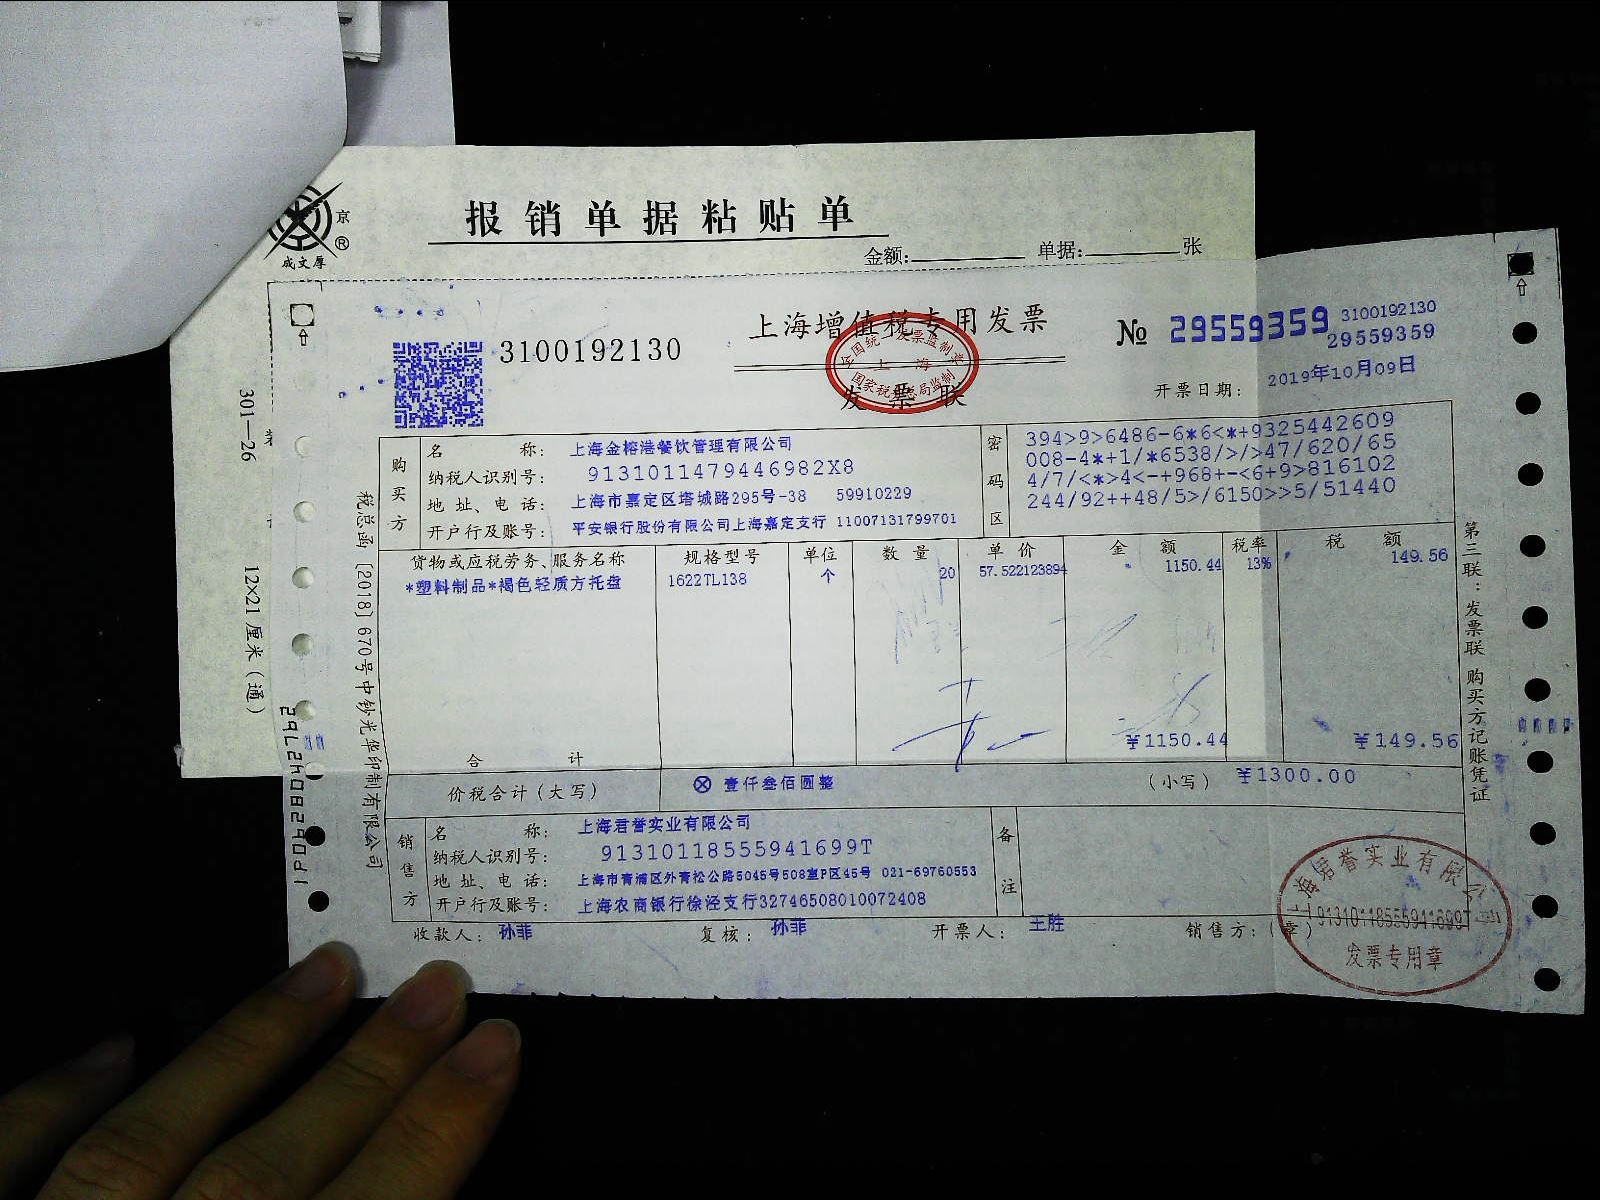 报销单据粘贴单
金额: 单据: 张
京
®
成文厚
301—26
12×21厘米(通)
上海增值税专用发票
发票联
全国统一发票监制章
上海
国家税务总局监制
3100192130
№ 29559359
3100192130
29559359
开票日期: 2019年10月09日
购买方
名称: 上海金榕港餐饮管理有限公司
纳税人识别号: 9131011479446982X8
地址、电话: 上海市嘉定区塔城路295号-38 59910229
开户行及账号: 平安银行股份有限公司上海嘉定支行 11007131799701
密码区
394>9>6486-6*6<*+9325442609
008-4*+1/*6538/>/>47/620/65
4/7/<*>4<-+968+-<6+9>816102
244/92++48/5>/6150>>5/51440
货物或应税劳务、服务名称 规格型号 单位 数量 单价 金额 税率 税额
*塑料制品*褐色轻质方托盘 1622TL138 个 20 57.522123894 1150.44 13% 149.56
合计 ¥1150.44 ¥149.56
价税合计(大写) ⊗ 壹仟叁佰圆整 (小写) ¥1300.00
销售方
名称: 上海君誉实业有限公司
纳税人识别号: 91310118555941699T
地址、电话: 上海市青浦区外青松公路5045号508室P区45号 021-69760553
开户行及账号: 上海农商银行徐泾支行32746508010072408
备注
收款人: 孙菲 复核: 孙菲 开票人: 王胜 销售方:(章)
上海君誉实业有限公司
91310118555941699T
发票专用章
税总函[2018]670号中钞光华印制有限公司
第三联:发票联 购买方记账凭证